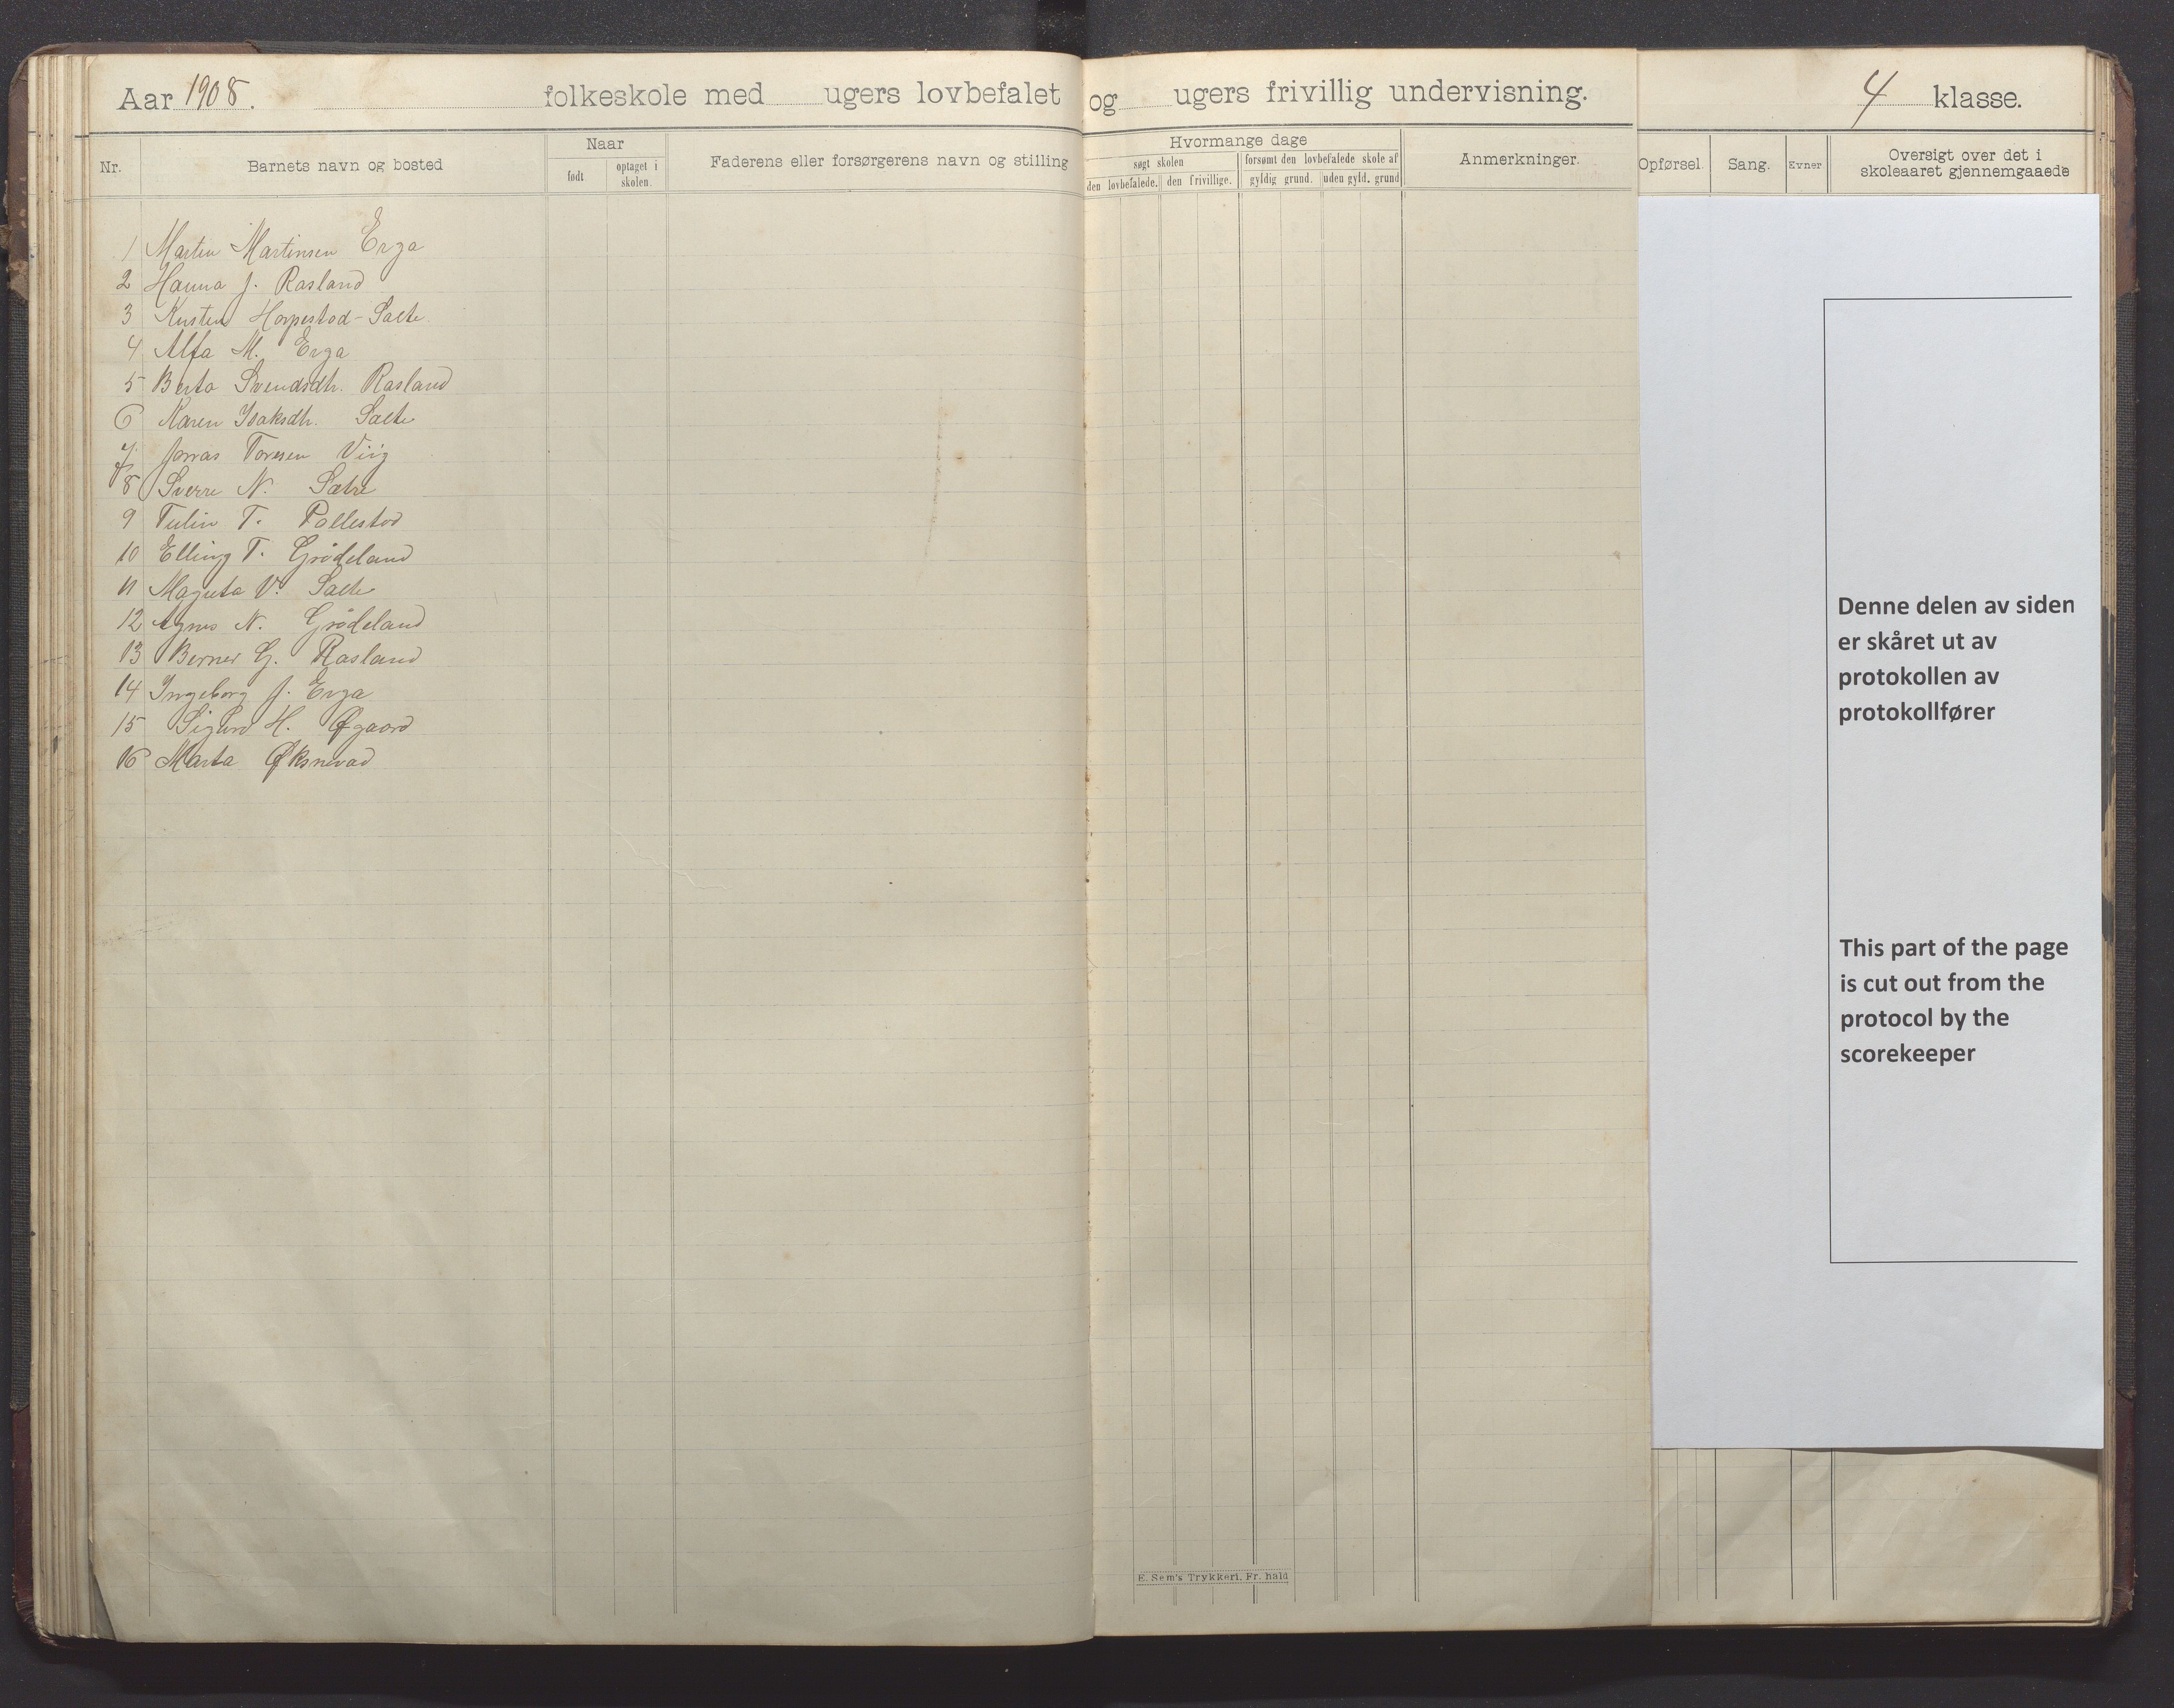 Aar 1908. folkeskole med ugers lovbefalet og ugers frivillig undervisning. 4 klasse.
Nr. Barnets navn og bosted Naar født optaget i skolen. Faderens eller forsørgerens navn og stilling
Hvormange dage søgt skolen den lovbefalede. den frivillige. forsømt den lovbefalede skole af gyldig grund. uden gyld. grund Anmerkninger.
Opførsel. Sang. Evner Oversigt over det i skoleaaret gjennemgaaede
1 Martin Martinsen Erga
2 Hanna J. Rasland
3 Kristen Horpestad-Salte
4 Alfa M. Erga
5 Berta Svendsdtr. Rasland
6 Karen Isaksdtr. Salte
7 Jonas Toresen Viig
8 Sverre N. Sætre
9 Tulin T. Pollestad
10 Elling T. Grødeland
11 V. Salte
12 Agnes N. Grødeland
13 Berner G. Rasland
14 Ingeborg J. Erga
15 Sigurd H. Øgaard
16 Marta Øksnevad
E. Sem's Trykkeri, Fr. hald
Denne delen av siden
er skåret ut av
protokollen av
protokollfører
This part of the page
is cut out from the
protocol by the
scorekeeper